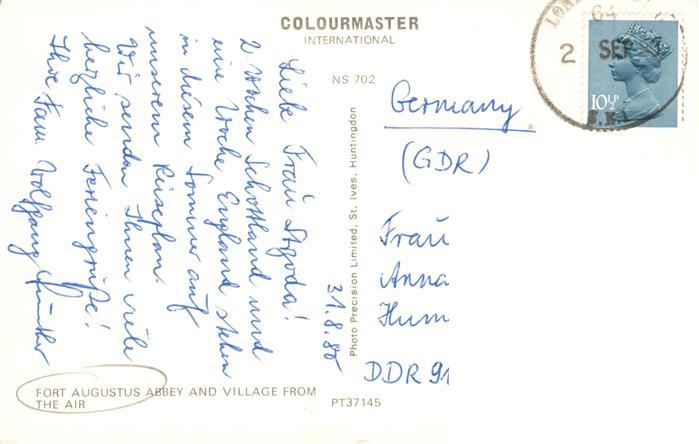 COLOURMASTER
INTERNATIONAL
NS 702
31.8.80
Liebe Frau
2 Wochen Schottland und
eine Woche England stehen
in diesem Sommer auf
unserem Reiseplan.
Wir senden Ihnen viele
herzliche Feriengrüße!
Ihre Fam. Wolfgang Günther
FORT AUGUSTUS ABBEY AND VILLAGE FROM
THE AIR
PT37145
Photo Precision Limited, St. Ives, Huntingdon
Germany
(GDR)
Frau
Anna
Hum
DDR 91
2 SEP
10½P